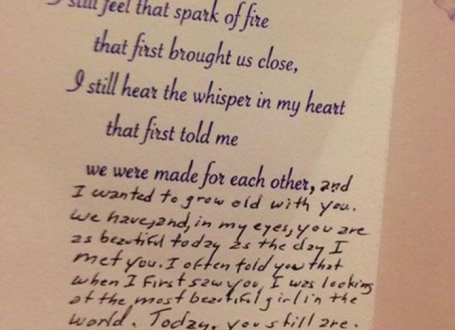 I still feel that spark of fire
that first brought us close,
I still hear the whisper in my heart
that first told me
we were made for each other, and
I wanted to grow old with you.
We have, and, in my eyes, you are
as beautiful today as the day I
met you. I often told you that
when I first saw you, I was looking
at the most beautiful girl in the
world. Today, you still are.